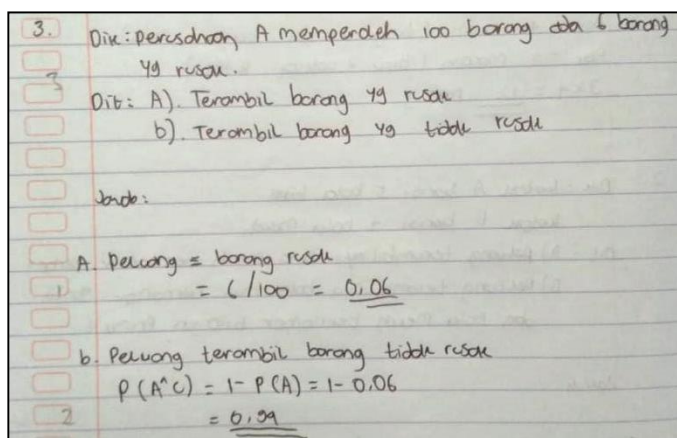 3. Dik: perusahaan A memperoleh 100 barang ada 6 barang
yg rusak.
3
Dit: A). Terambil barang yg rusak
b). Terambil barang yg tidak rusak
Jawab:
A. peluang = barang rusak
1 = 6/100 = 0,06
b. Peluang terambil barang tidak rusak
P(A^C) = 1 - P(A) = 1 - 0.06
2 = 0,94